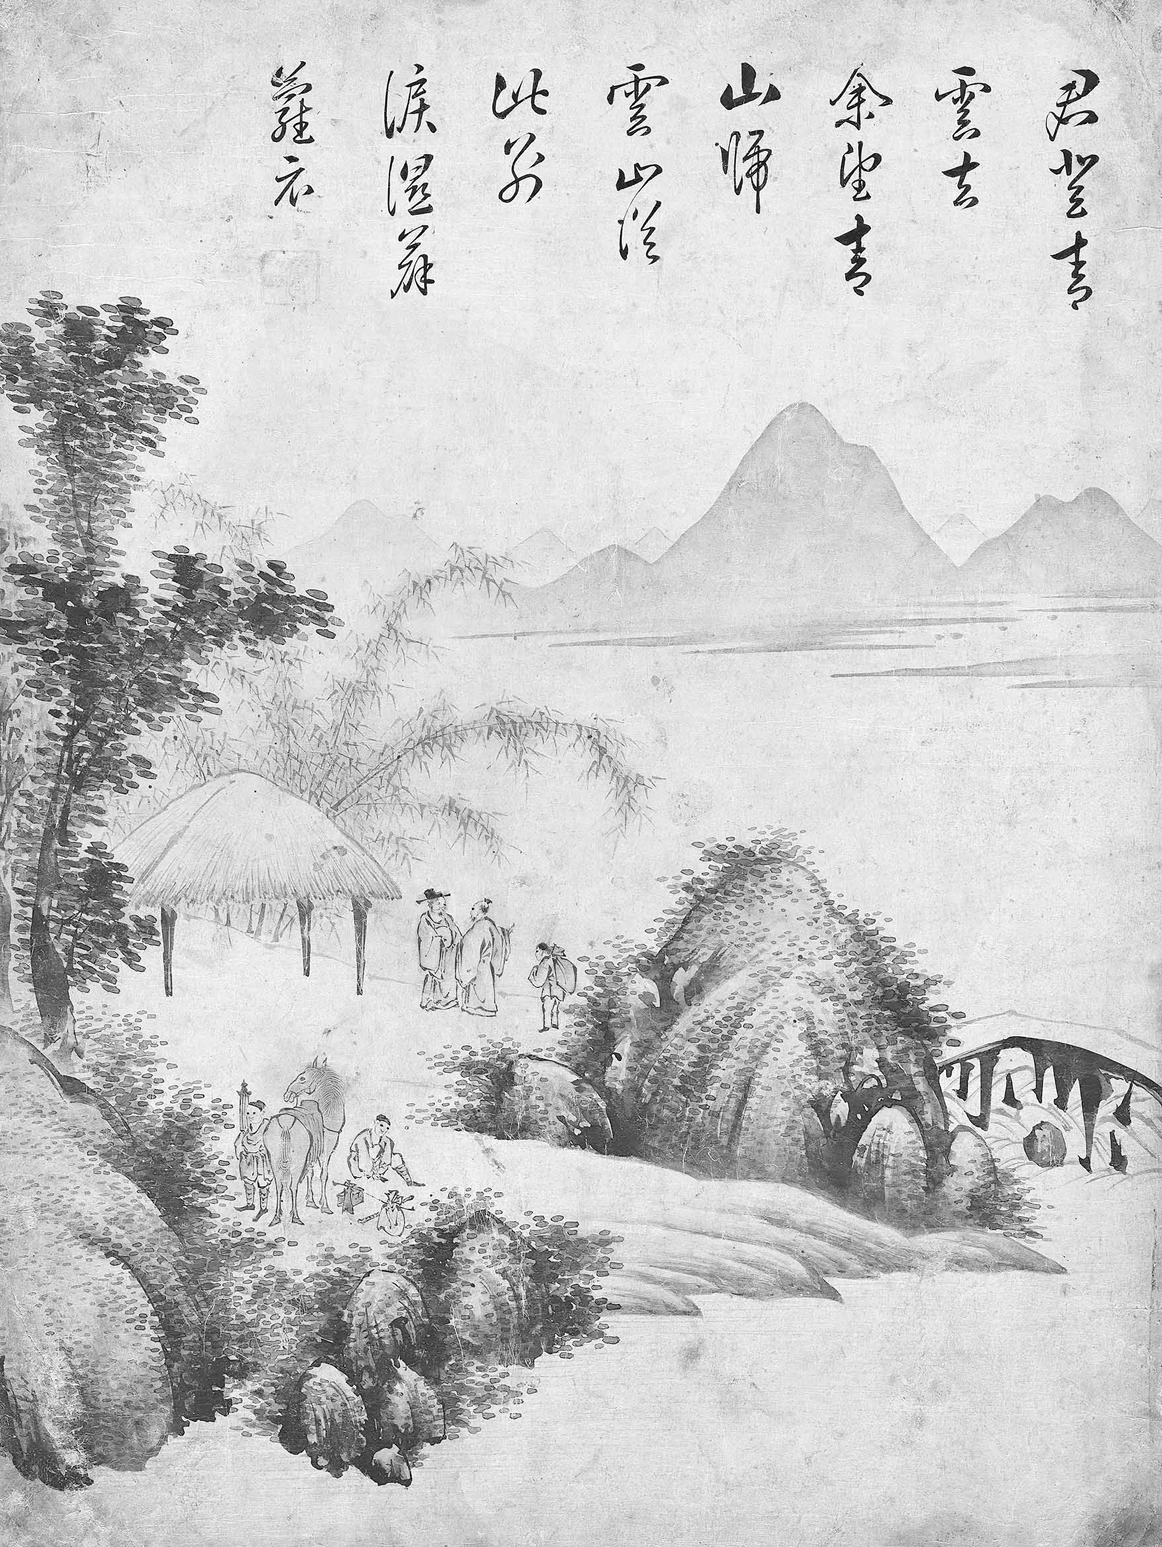 君登青
雲去
余望青
山歸
雲山從
此別
淚濕薜
蘿衣